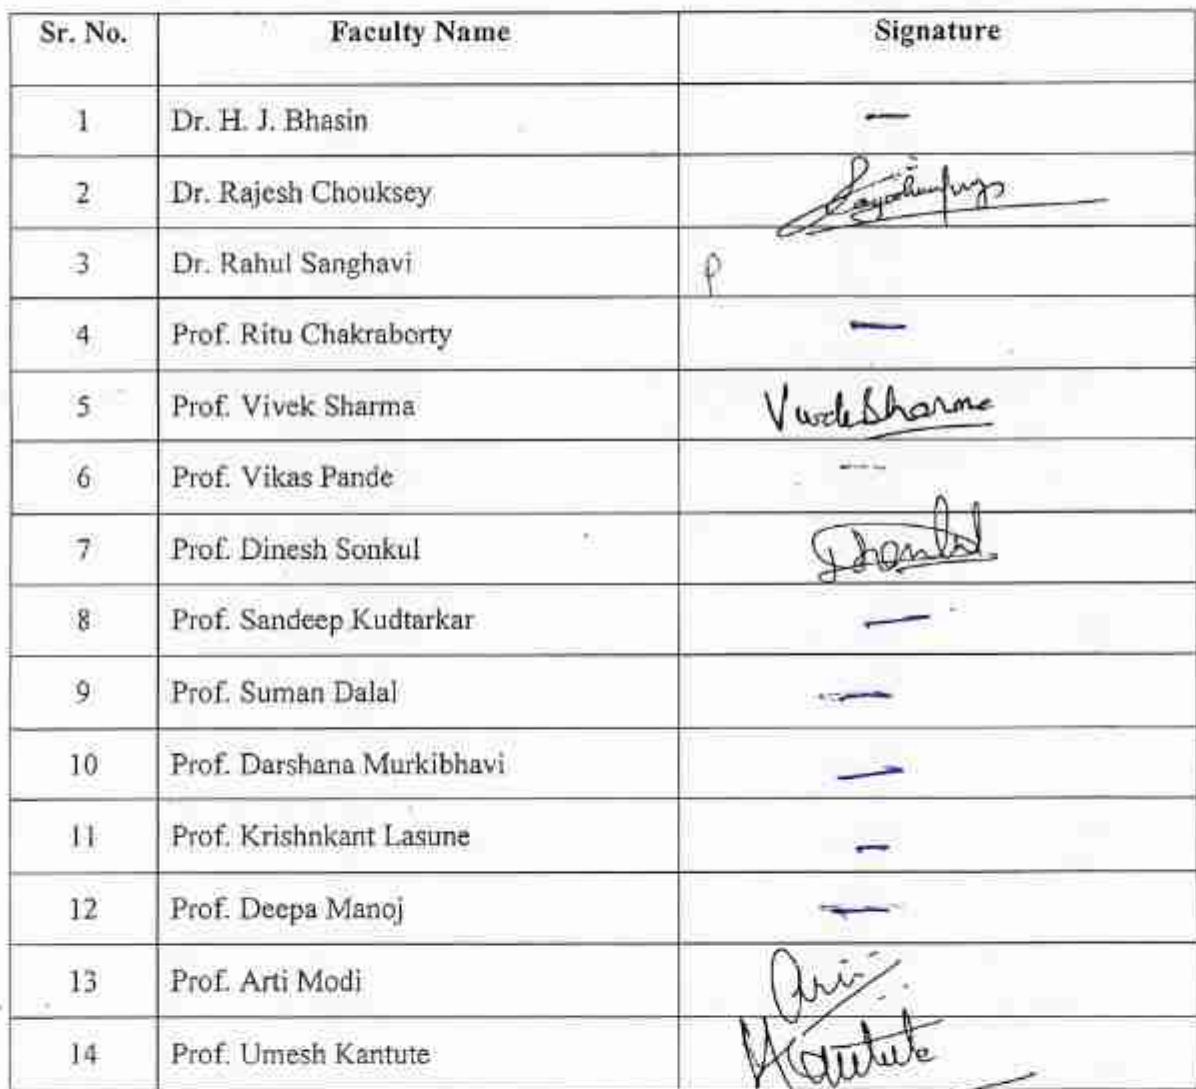 Sr. No. Faculty Name Signature
1 Dr. H. J. Bhasin —
2 Dr. Rajesh Chouksey
3 Dr. Rahul Sanghavi P
4 Prof. Ritu Chakraborty —
5 Prof. Vivek Sharma VivekSharma
6 Prof. Vikas Pande ---
7 Prof. Dinesh Sonkul
8 Prof. Sandeep Kudtarkar —
9 Prof. Suman Dalal —
10 Prof. Darshana Murkibhavi —
11 Prof. Krishnkant Lasune —
12 Prof. Deepa Manoj —
13 Prof. Arti Modi
14 Prof. Umesh Kantute Kantute